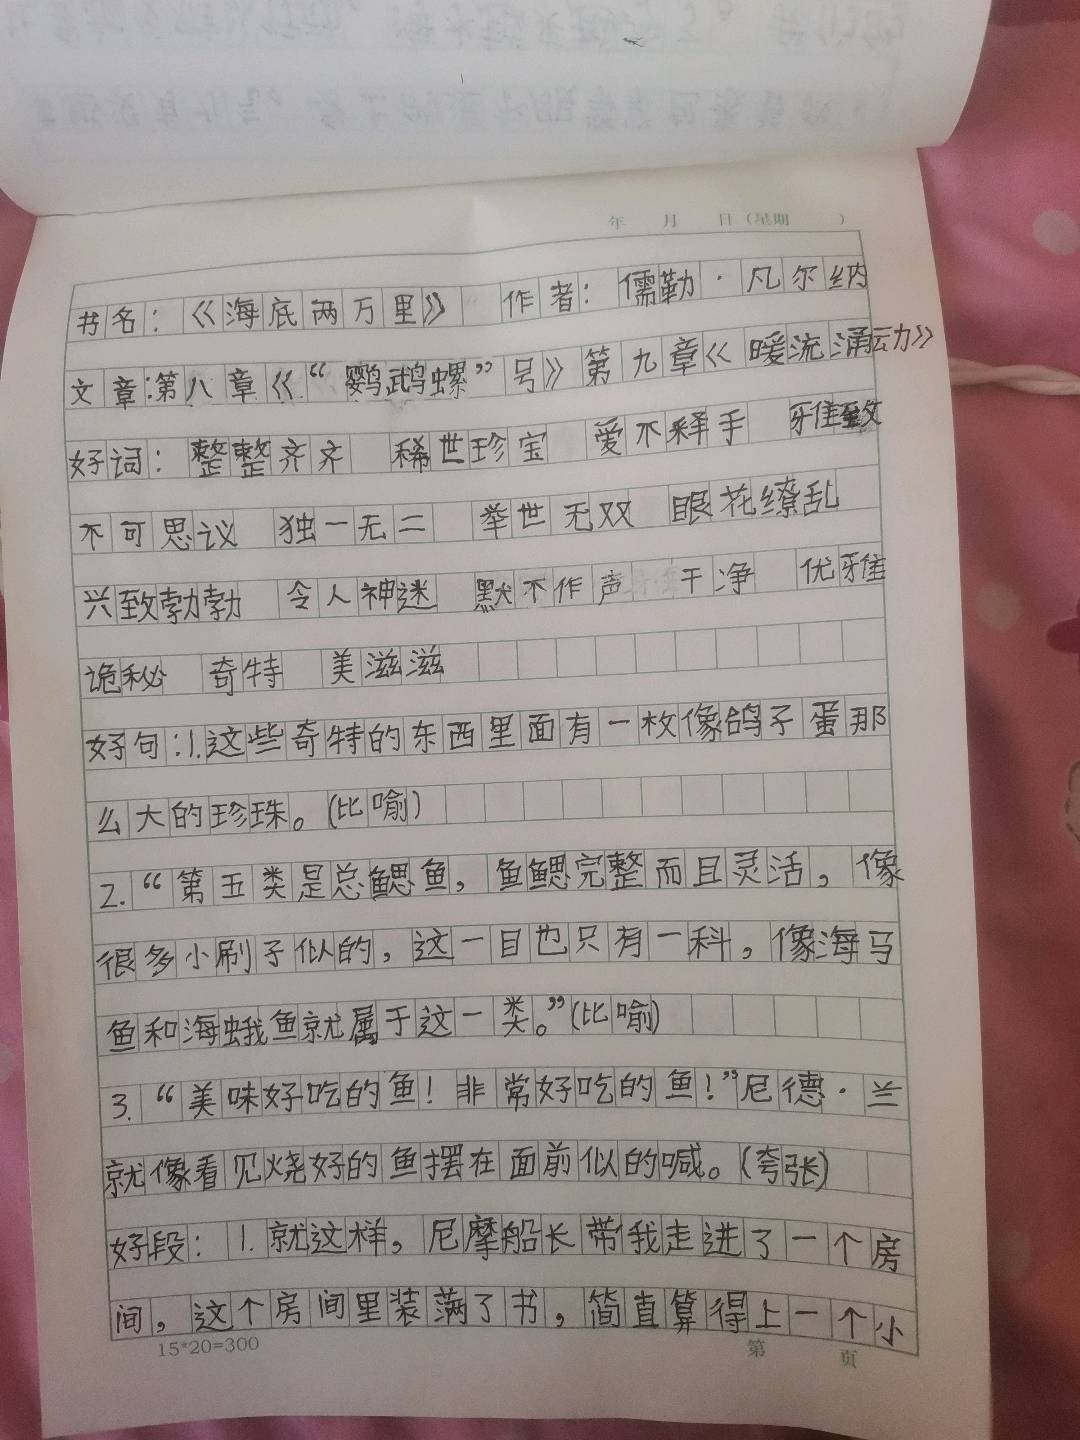 年 月 日（星期 ）
书名：《海底两万里》 作者：儒勒·凡尔纳
文章：第八章《“鹦鹉螺”号》第九章《暖流涌动》
好词：整整齐齐 稀世珍宝 爱不释手 雅致
不可思议 独一无二 举世无双 眼花缭乱
兴致勃勃 令人神迷 默不作声 干净 优雅
诡秘 奇特 美滋滋
好句：1.这些奇特的东西里面有一枚像鸽子蛋那
么大的珍珠。（比喻）
2.“第五类是总鳃鱼，鱼鳃完整而且灵活，像
很多小刷子似的，这一目也只有一科，像海马
鱼和海蛾鱼就属于这一类。”（比喻）
3.“美味好吃的鱼！非常好吃的鱼！”尼德·兰
就像看见烧好的鱼摆在面前似的喊。（夸张）
好段：1.就这样，尼摩船长带我走进了一个房
间，这个房间里装满了书，简直算得上一个小
15*20=300
第 页